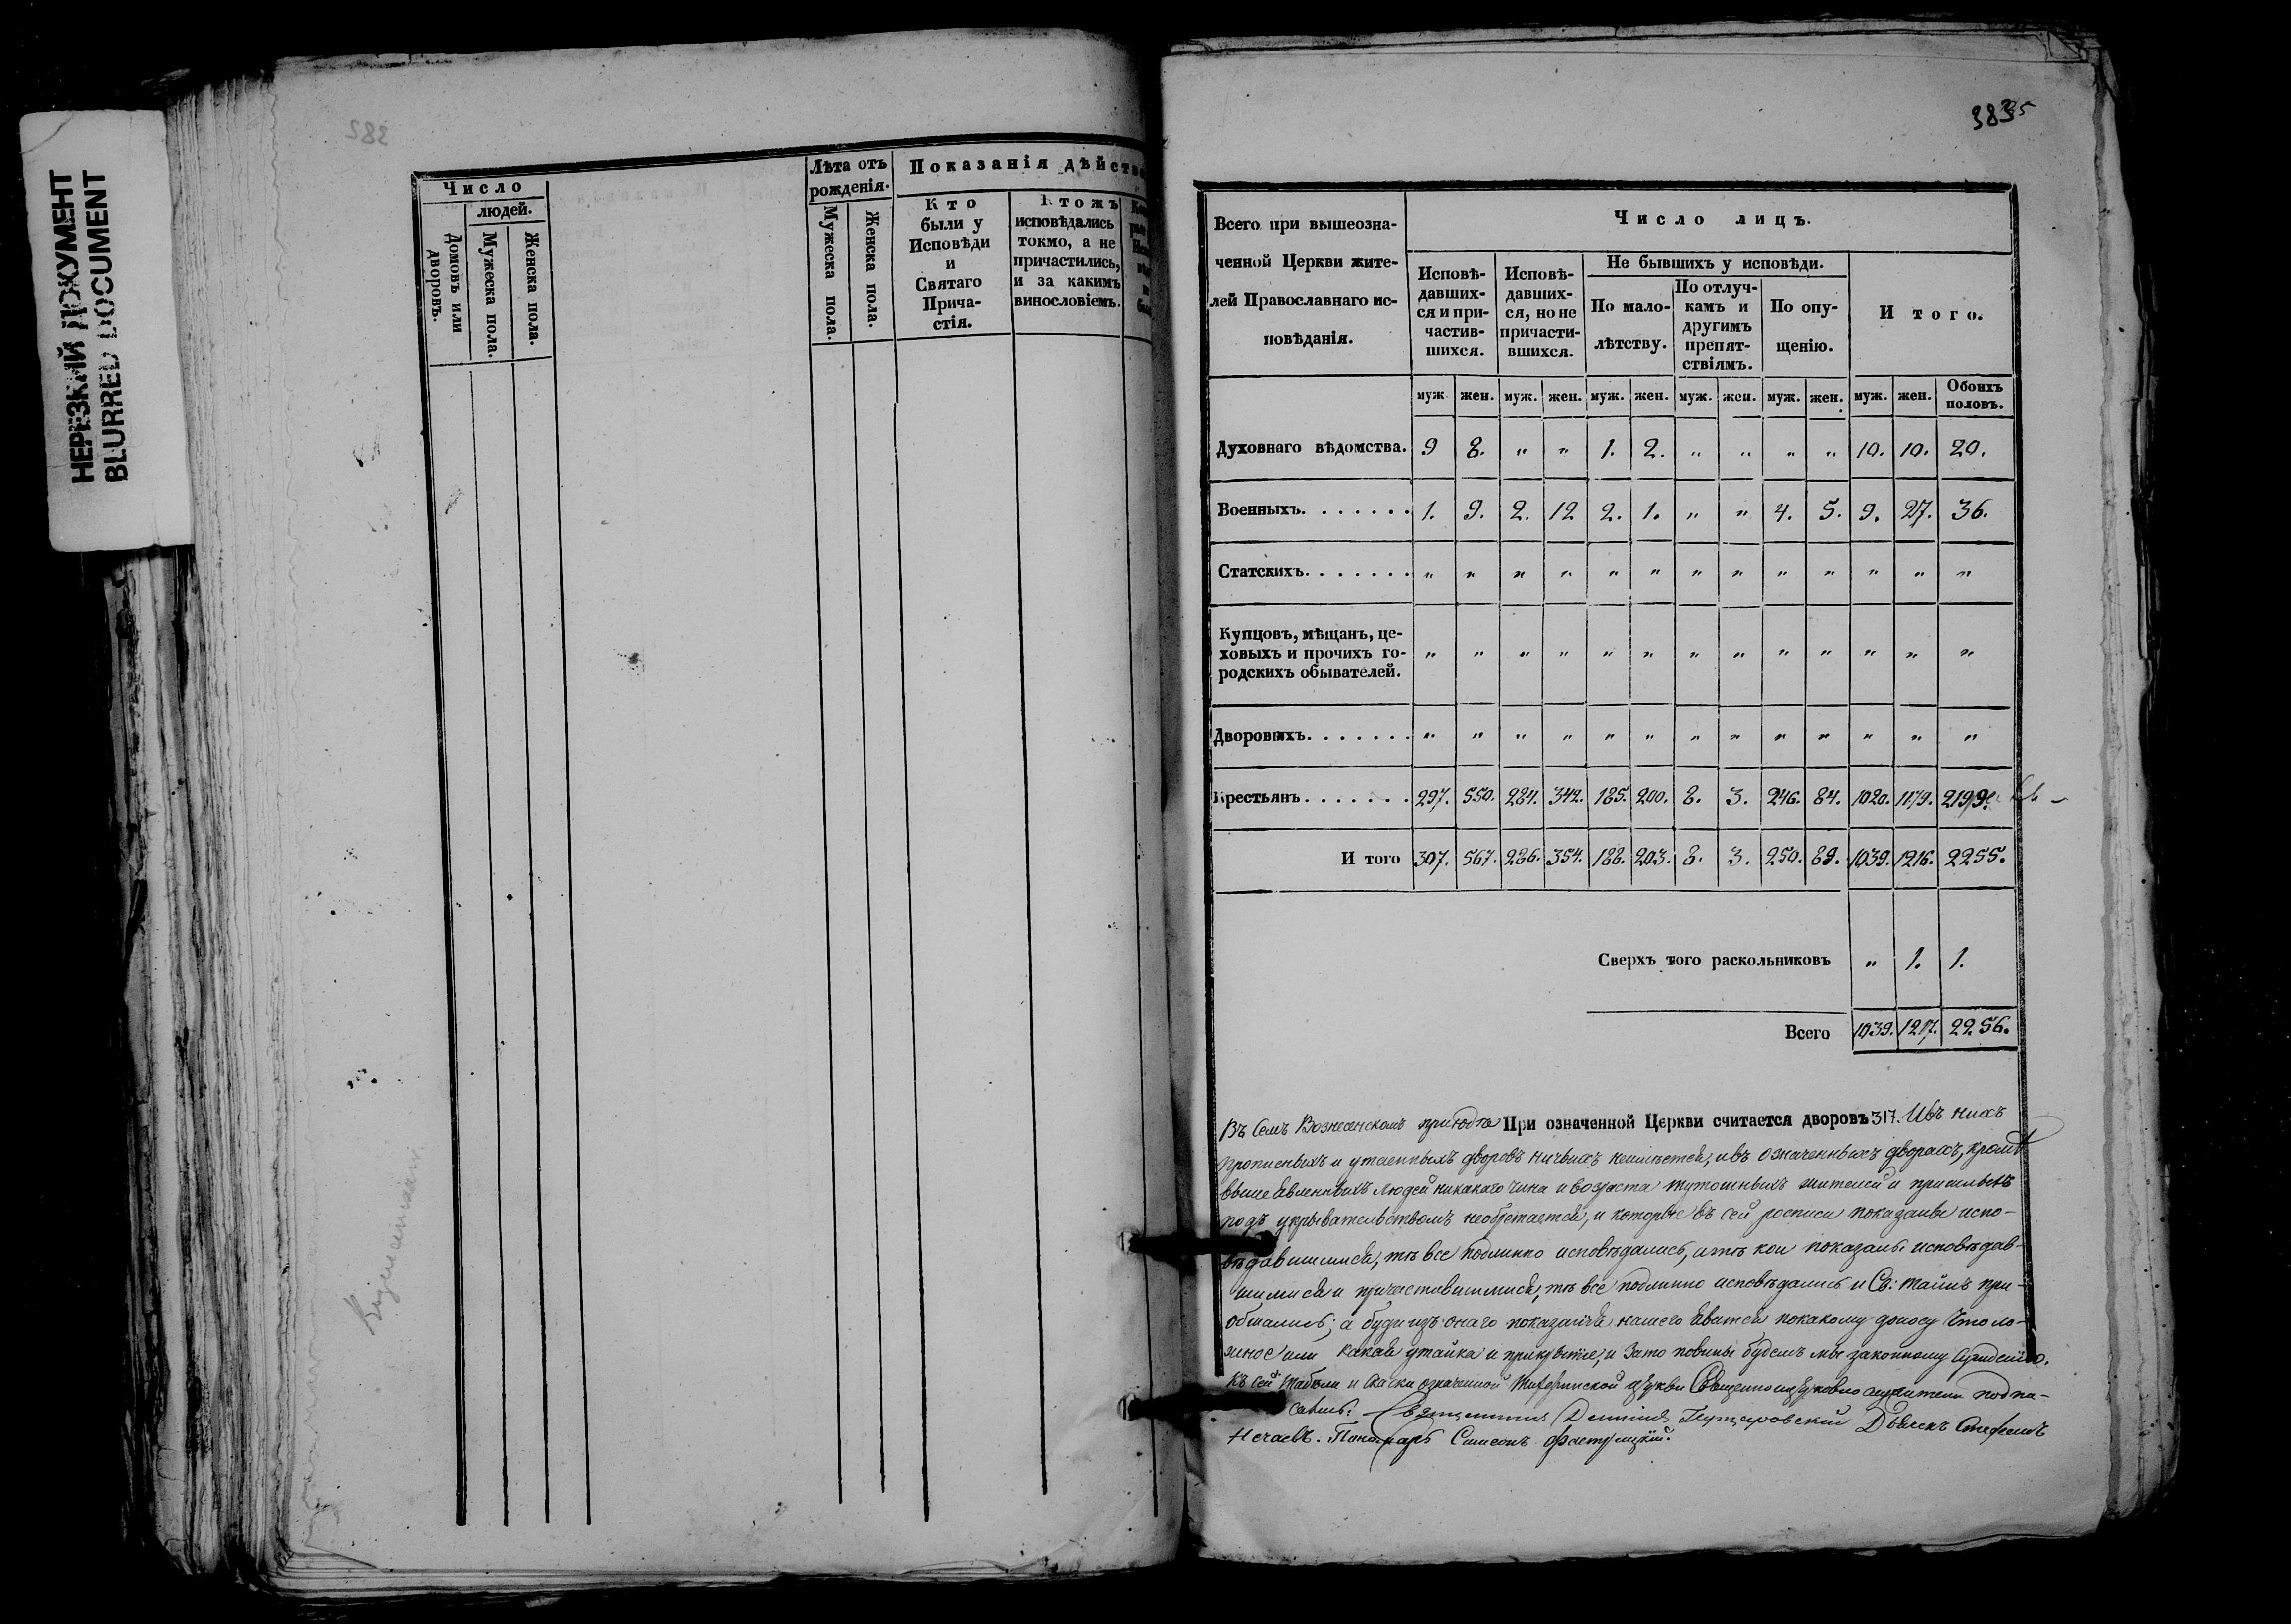 НЕРЕЗКИЙ ДОКУМЕНТ
BLURRED DOCUMENT
382
Число
людей.
Домовъ или дворовъ.
Мужеска пола.
Женска пола.
Лѣта отъ рожденія.
Мужеска пола.
Женска пола.
Показанія дѣйств
Кто были у Исповѣди и Святаго Прича-стія.
Ктожъ исповѣдались токмо, а не причастились, и за какимъ винословіемъ.
383
Всего при вышеозна-
ченной Церкви жите-
лей Православнаго ис-
повѣданія.
Число лицъ.
Исповѣ-давших-ся и при-частив-шихся.
Исповѣ-давших-ся, но не причасти-вшихся.
Не бывшихъ у исповѣди.
По мало-лѣтству.
По отлуч-камъ и другимъ препят-ствіямъ.
По опу-щенію.
И того.
муж. жен. муж. жен. муж. жен. муж. жен. муж. жен. муж. жен. Обоихъ половъ.
Духовнаго вѣдомства. 9 8. „ „ 1. 2. „ „ „ „ 10. 10. 20.
Военныхъ. . . . . . . 1. 9. 2. 12 2. 1. „ „ 4. 5. 9. 27. 36.
Статскихъ. . . . . . . „ „ „ „ „ „ „ „ „ „ „ „ „
Купцовъ, мѣщанъ, це-
ховыхъ и прочихъ го-
родскихъ обывателей. „ „ „ „ „ „ „ „ „ „ „ „ „
Дворовыхъ. . . . . . . „ „ „ „ „ „ „ „ „ „ „ „ „
Крестьянъ. . . . . . . 297. 550. 284. 342. 185. 200. 8. 3. 246. 84. 1020. 1179. 2199.
И того 307. 567. 286. 354. 188. 203. 8. 3. 250. 89. 1039. 1216. 2255.
Сверхъ того раскольниковъ „ 1. 1.
Всего 1039. 1217. 2256.
Въ семъ Вознесенскомъ приходѣ При означенной Церкви считается дворовъ 317. Изъ нихъ
прописныхъ и утаенныхъ дворовъ ничьихъ неимѣется, ивъ означенныхъ дворахъ, кромѣ
вышеявленныхъ людей никакаго чина и возраста тутошныхъ жителей и пришлыхъ
подъ укрывательствомъ необрѣтается, и которые въ сей росписи показаны испо-
вѣдавшимися, тѣ все подлинно исповѣдались, итѣ кои показаны исповѣдав-
шимися и причастившимися, тѣ все подлинно исповѣдались и Св: таинъ при-
общались; а буди изъ онаго показанія нашего явится покакому доносу что ло-
жное или какая утайка и прикрытіе, и зато повинны будемъ мы законному сужденію.
Къ сей табели и скаски означенной церкви Священноцерковнослужители подпи-
сались: Священникъ Дьячекъ Стефанъ
Нечаевъ. Пономарь Симеонъ